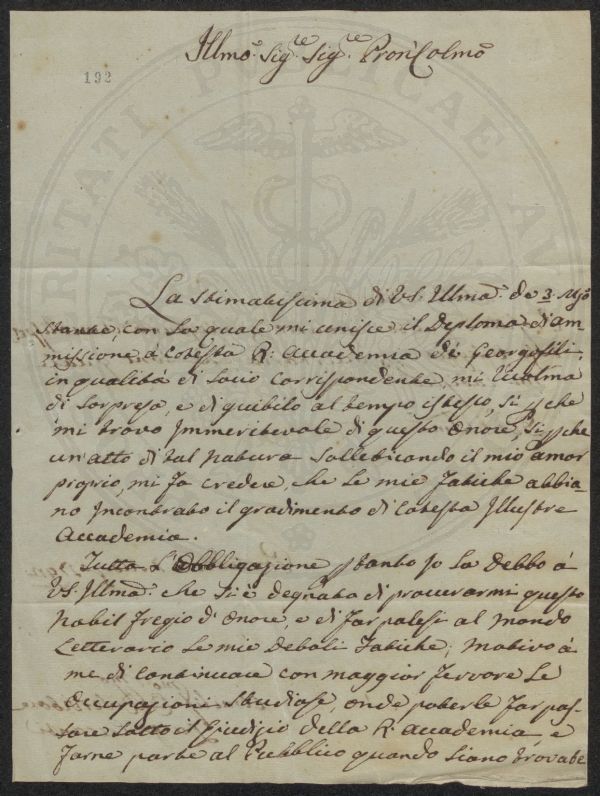 Illmo. Sigre. Sigre. Pron Colmo
192
PUBLICAE
La stimatissima di VS. Illma. de 3. Ago
stante, con la quale mi unisce il Deploma di am
missione à Cotesta R. Accademia de Georgofili,
in qualità di Socio Corrispondente, mi ricolma
di sorpresa, e di giubilo al tempo istesso, sì che
mi trovo immeritevole di questo Onore, sì che
un'atto di tal natura solleticando il mio amor
proprio, mi fa credere, che le mie fatiche abbia-
no incontrato il gradimento di Cotesta Illustre
Accademia.
Tutta l'Obbligazione stanto io la debbo à
VS. Illma. che si è degnata di procurarmi questo
nobil fregio d'Onore, e di far palesi al Mondo
Letterario le mie deboli fatiche; motivo à
me di continuare con maggior fervore le
Occupazioni Studiose, onde poterle far pas-
sare sotto il Giudizio della R. Accademia, e
farne parte al Pubblico quando siano trovate